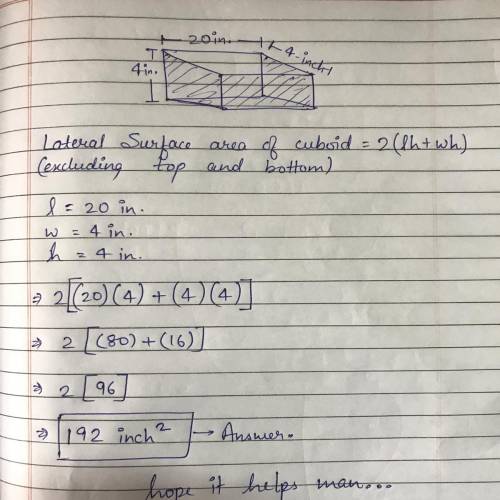 20in.
4-inch
4in.
Lateral Surface area of cuboid = 2(lh+wh)
(excluding top and bottom)
l = 20 in.
w = 4 in.
h = 4 in.
⇒ 2[(20)(4) + (4)(4)]
⇒ 2 [(80)+(16)]
⇒ 2 [96]
⇒ 192 inch² → Answer.
hope it helps man...